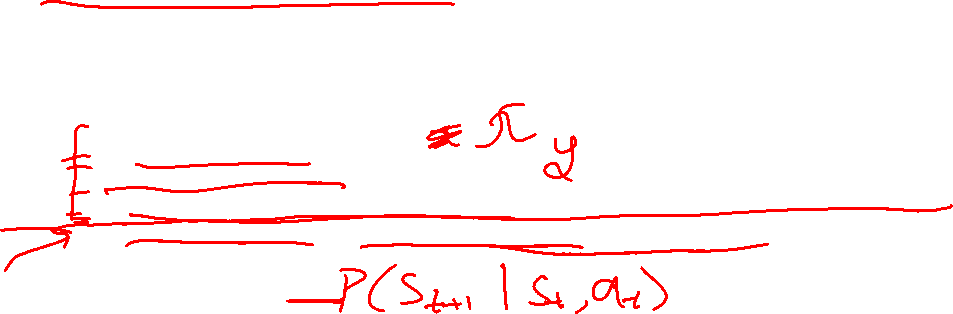 π_y
P(S_{t+1} | S_t, a_t)